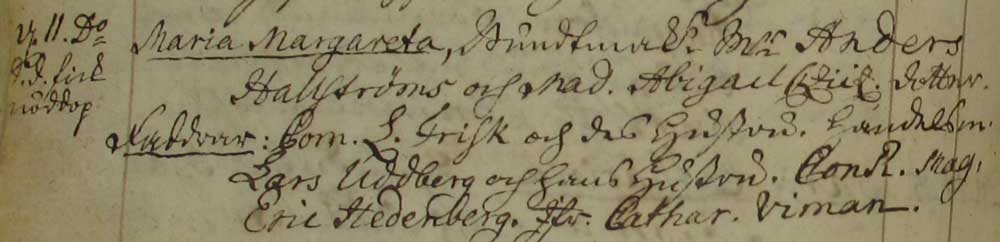 d. 11. Do
d. d. fick
nöddop
Maria Margareta, Kundtmak. Mr Anders
Hallströms och Mad. Abigail dotter.
Faddrar: Com. L. Frisk och des Hustru. Handelsm.
Lars Uddberg och hans Hustru. ConR. Mag.
Eric Hedenberg. Jfr. Cathar. Viman.